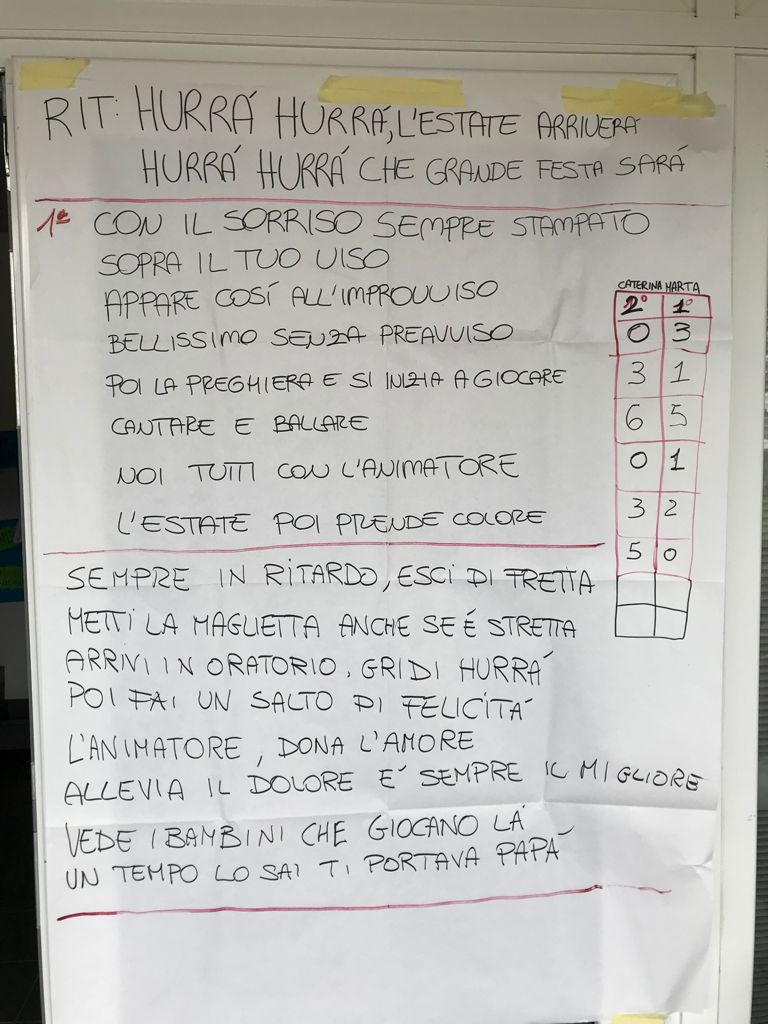 RIT: HURRÁ HURRÁ, L'ESTATE ARRIVERÁ
HURRÁ HURRÁ CHE GRANDE FESTA SARÁ
1ª CON IL SORRISO SEMPRE STAMPATO
SOPRA IL TUO VISO
APPARE COSÍ ALL'IMPROVVISO
BELLISSIMO SENZA PREAVVISO
POI LA PREGHIERA E SI INIZIA A GIOCARE
CANTARE E BALLARE
NOI TUTTI CON L'ANIMATORE
L'ESTATE POI PRENDE COLORE
CATERINA MARTA
2° 1°
0 3
3 1
6 5
0 1
3 2
5 0
SEMPRE IN RITARDO, ESCI DI FRETTA
METTI LA MAGLIETTA ANCHE SE É STRETTA
ARRIVI IN ORATORIO, GRIDI HURRÁ
POI FAI UN SALTO DI FELICITÁ
L'ANIMATORE, DONA L'AMORE
ALLEVIA IL DOLORE E' SEMPRE IL MIGLIORE
VEDE I BAMBINI CHE GIOCANO LÁ
UN TEMPO LO SAI TI PORTAVA PAPÁ